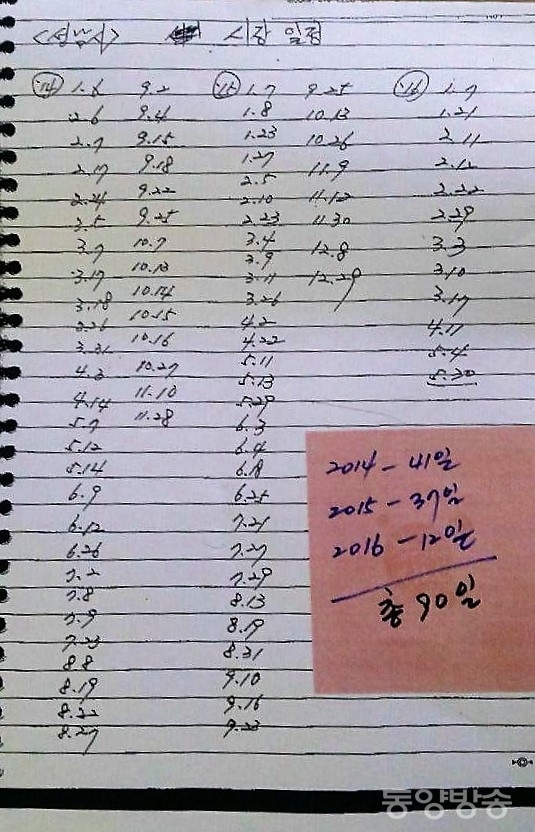 <성남시> 시장 일정
'14 1.6 9.2 '15 1.7 9.25 '16 1.7
2.6 9.4 1.8 10.13 1.21
2.7 9.15 1.23 10.26 2.11
2.17 9.18 1.27 11.9 2.12
2.24 9.22 2.5 11.12 2.22
3.5 9.25 2.10 11.30 2.29
3.7 10.7 2.23 12.8 3.3
3.17 10.13 3.4 12.29 3.10
3.18 10.14 3.9 3.17
3.26 10.15 3.11 4.11
3.31 10.16 3.26 5.4
4.3 10.27 4.2 5.30
4.14 11.10 4.22
5.7 11.28 5.11
5.12 5.13
5.14 5.29
6.9 6.3
6.12 6.4
6.26 6.18
7.2 6.25
7.8 7.21
7.9 7.27
7.23 7.29
8.8 8.13
8.19 8.19
8.22 8.31
8.27 9.10
9.16
9.23
2014 - 41일
2015 - 37일
2016 - 12일
총 90일
동양방송